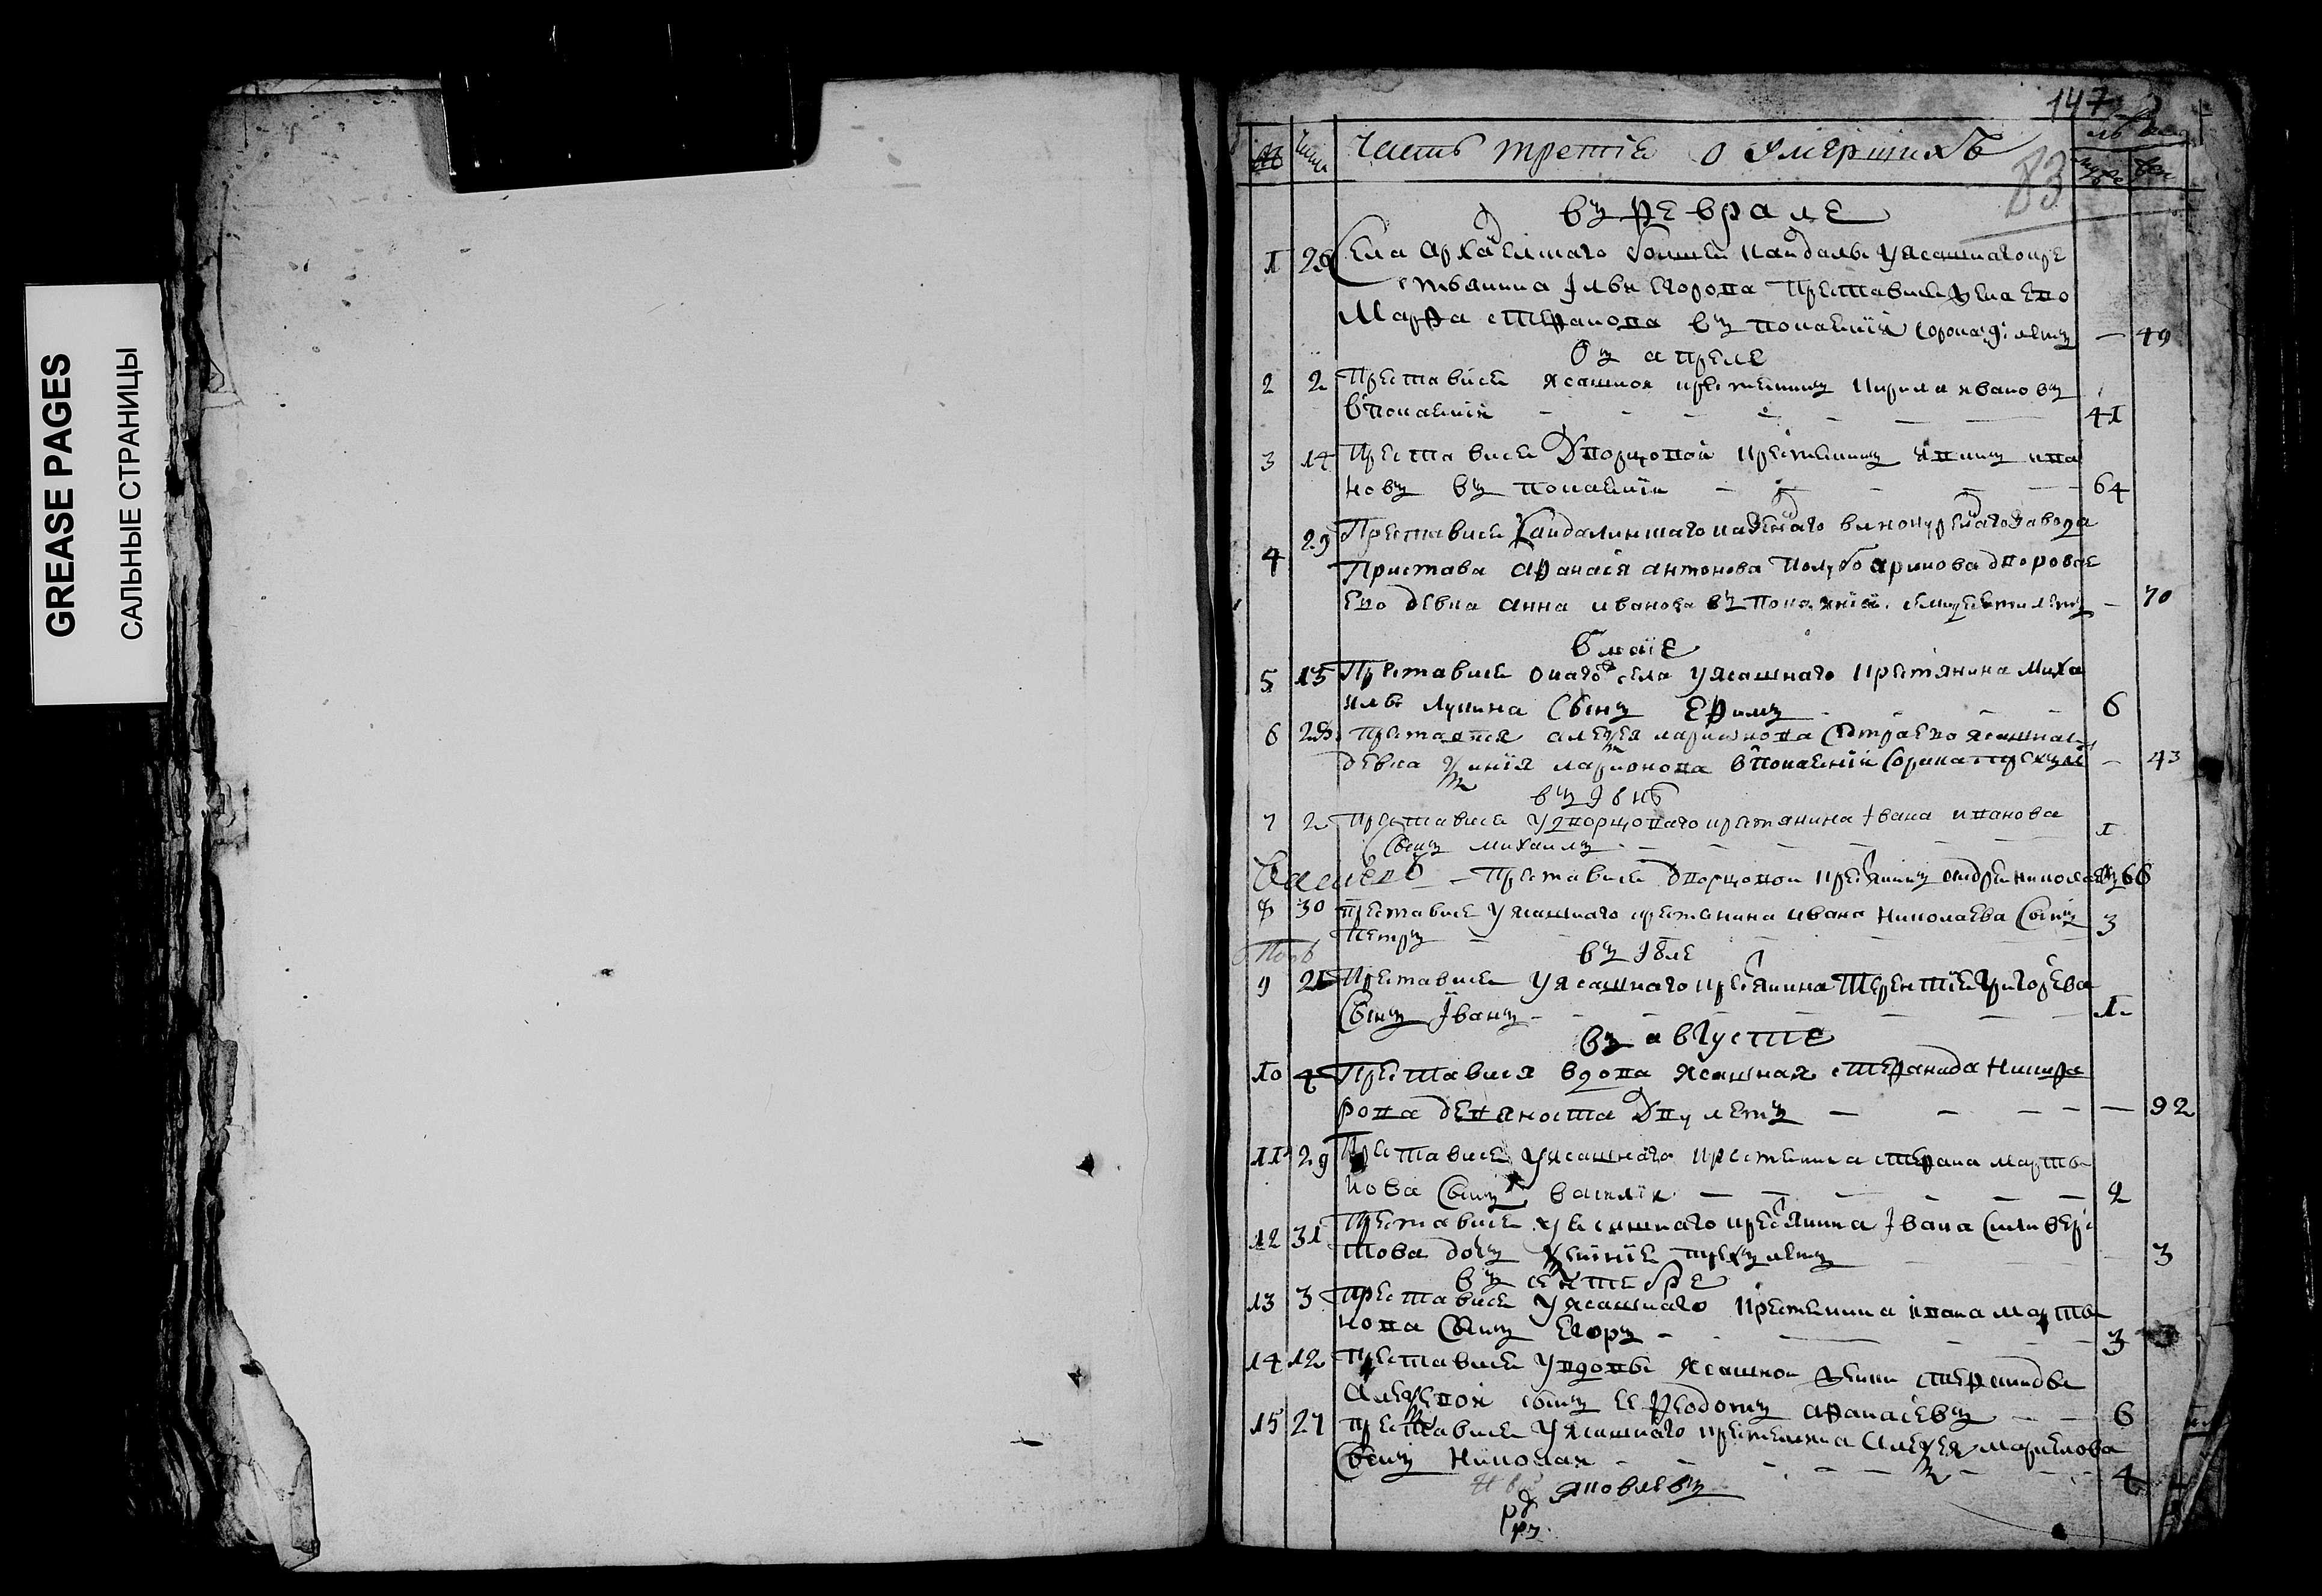 GREASE PAGES
САЛЬНЫЕ СТРАНИЦЫ
147
№ числ Часть третiя о умершихъ
83
въ феврале
1 26 Села архаелскаго болшей кандалы у ясашнаго кре
стьянина Iльи егорова преставися жена ево
Марфа стефанова въ покаенiи сорока 9 летъ — 49
въ апреле
2 2 Преставися ясашнои крестенинъ кирила ивановъ
в покаенiи 41
3 14 Преставися дворцовои крестенинъ ива
новъ въ покаенiи 64
4 29 Преставися кандалинскаго казеннаго винокуреннаго завода
Пристава афанасiя антонова полубояринова дворовая
ево девка анна иванова въ покаянiи семидесяти летъ — 70
в маiе
5 15 Преставися онаго села у ясашнаго крестянина миха
ила лукина сынъ ефимъ 6
6 28 преставися алеѯея ларионова сестра ево ясашная
девка ларионова в покаенiи сорока трехъ — 43
въ Iюнѣ
7 2 преставися у дворцоваго крестянина Iвана иванова
сынъ михаилъ 1
преставися дворцовои крестянинъ андреи 66
8 30 преставися у ясашнаго крестянина ивана николаева сынъ 3
петръ
въ Iюле
9 21 Преставися у ясашнаго крестянина терентiя григорева
сынъ Iванъ 1
въ августе
10 4 Преставися вдова ясашная стефанида никифо
рова девяноста дву летъ — 92
11 29 Преставися у ясашнаго крестенина стефана марты
нова сынъ василiи 2
12 31 Преставися у ясашнаго крестянина Iвана силивер
стова дочь трехъ летъ 3
въ сентебре
13 3 преставися у ясашнаго крестенина ивана марты
нова сынъ егоръ 3
14 12 преставися у вдовы ясашнои жены стефаниды
алеѯевои сынъ ее феодотъ афанасевъ 6
15 27 преставися у ясашнаго крестенина алеѯея
сынъ николаи 4
яковлевъ